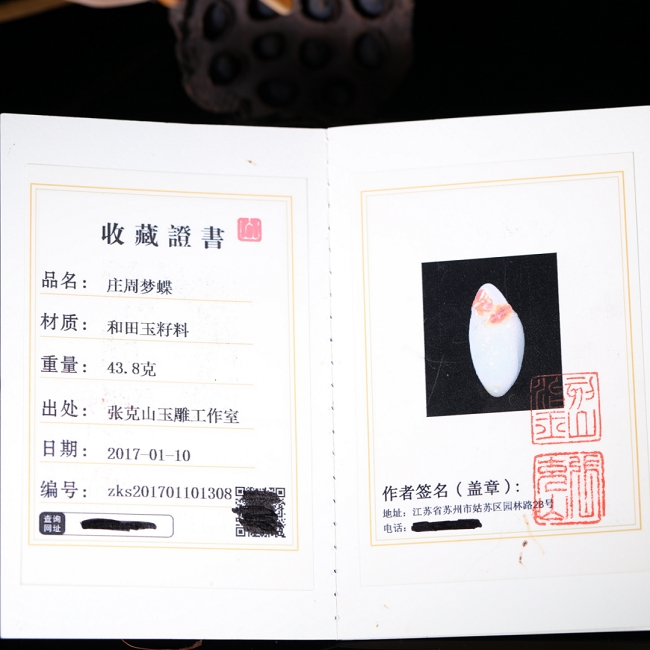 收藏證書
品名：庄周梦蝶
材质：和田玉籽料
重量：43.8克
出处：张克山玉雕工作室
日期：2017-01-10
编号：zks201701101308
查询
网址
作者签名（盖章）：
地址：江苏省苏州市姑苏区园林路28号
电话：